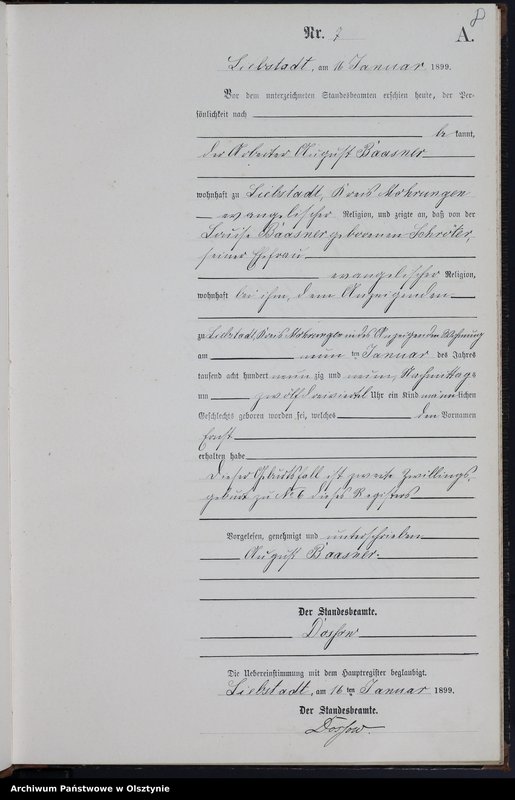 8
Nr. 7
A.
Liebstadt, am 16 Januar 1899.
Vor dem unterzeichneten Standesbeamten erschien heute, der Per-
sönlichkeit nach
be kannt,
der Arbeiter August Baasner
wohnhaft zu Liebstadt, Kreis Mohrungen
evangelischer Religion, und zeigte an, daß von der
Louise Baasner geborenen Schröter,
seiner Ehefrau
evangelischer Religion,
wohnhaft bei ihm, dem Anzeigenden
zu Liebstadt, Kreis Mohrungen in des Anzeigenden Wohnung
am neun ten Januar des Jahres
tausend acht hundert neun zig und neun, Nachmittags
um zwölf dreiviertel Uhr ein Kind männlichen
Geschlechts geboren worden sei, welches den Vornamen
Ernst
erhalten habe
Dieser Geburtsfall ist zweite Zwillings-
geburt zu No 6 dieses Registers
Vorgelesen, genehmigt und unterschrieben
August Baasner.
Der Standesbeamte.
Dossow
Die Uebereinstimmung mit dem Hauptregister beglaubigt.
Liebstadt, am 16 ten Januar 1899.
Der Standesbeamte.
Dossow.
Archiwum Państwowe w Olsztynie